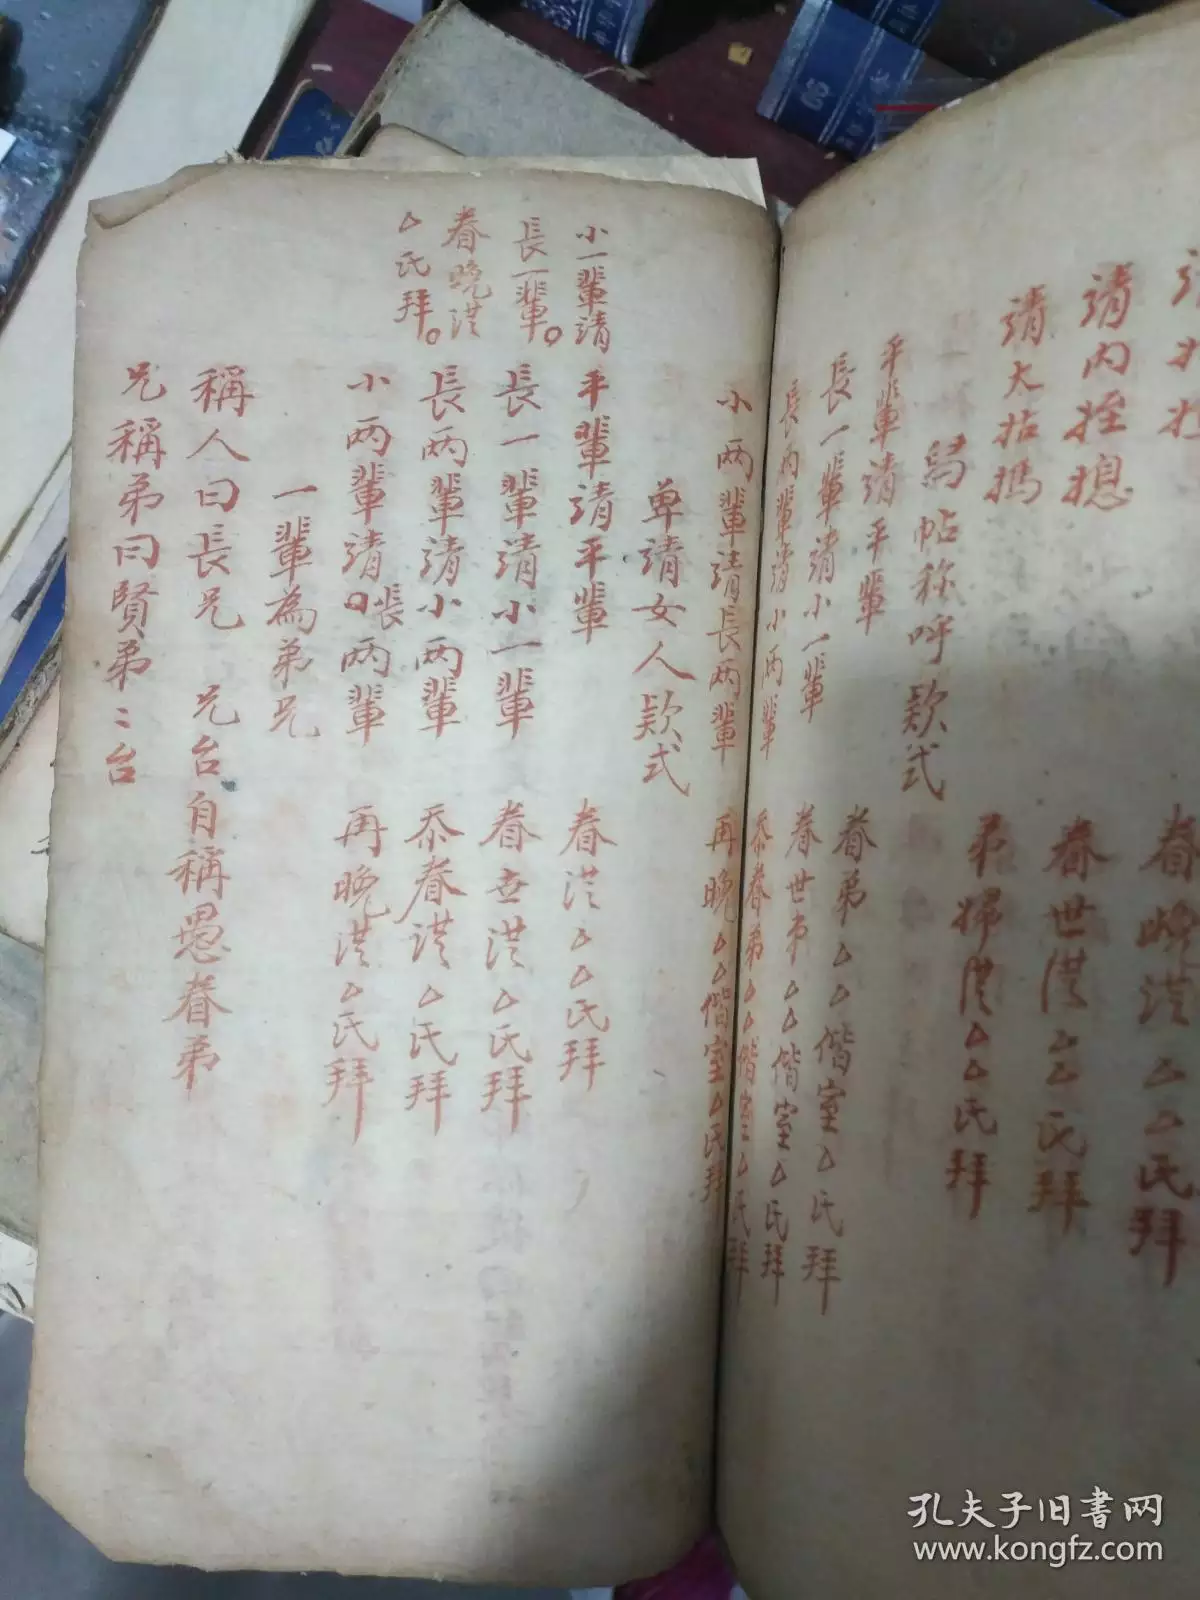 請內姪媳 眷世㳖△△氏拜
請太姑媽 弟婦㳖△△氏拜
一寫帖称呼款式
平輩請平輩 眷弟△△偕室△氏拜
長一輩請小一輩 眷世弟△△偕室△氏拜
長两輩請小两輩 忝眷弟△△偕室△氏拜
小两輩請長两輩 再晚△△偕室△氏拜
单請女人款式
小一輩請
長一輩。
眷晚㳖
△氏拜。
平輩請平輩 眷㳖△△氏拜
長一輩請小一輩 眷世㳖△氏拜
長两輩請小两輩 忝眷㳖△氏拜
小两輩請長两輩 再晚㳖△氏拜
一輩為弟兄
稱人曰長兄 兄台自稱愚眷弟
兄稱弟曰賢弟〻台
孔夫子旧書网
www.kongfz.com